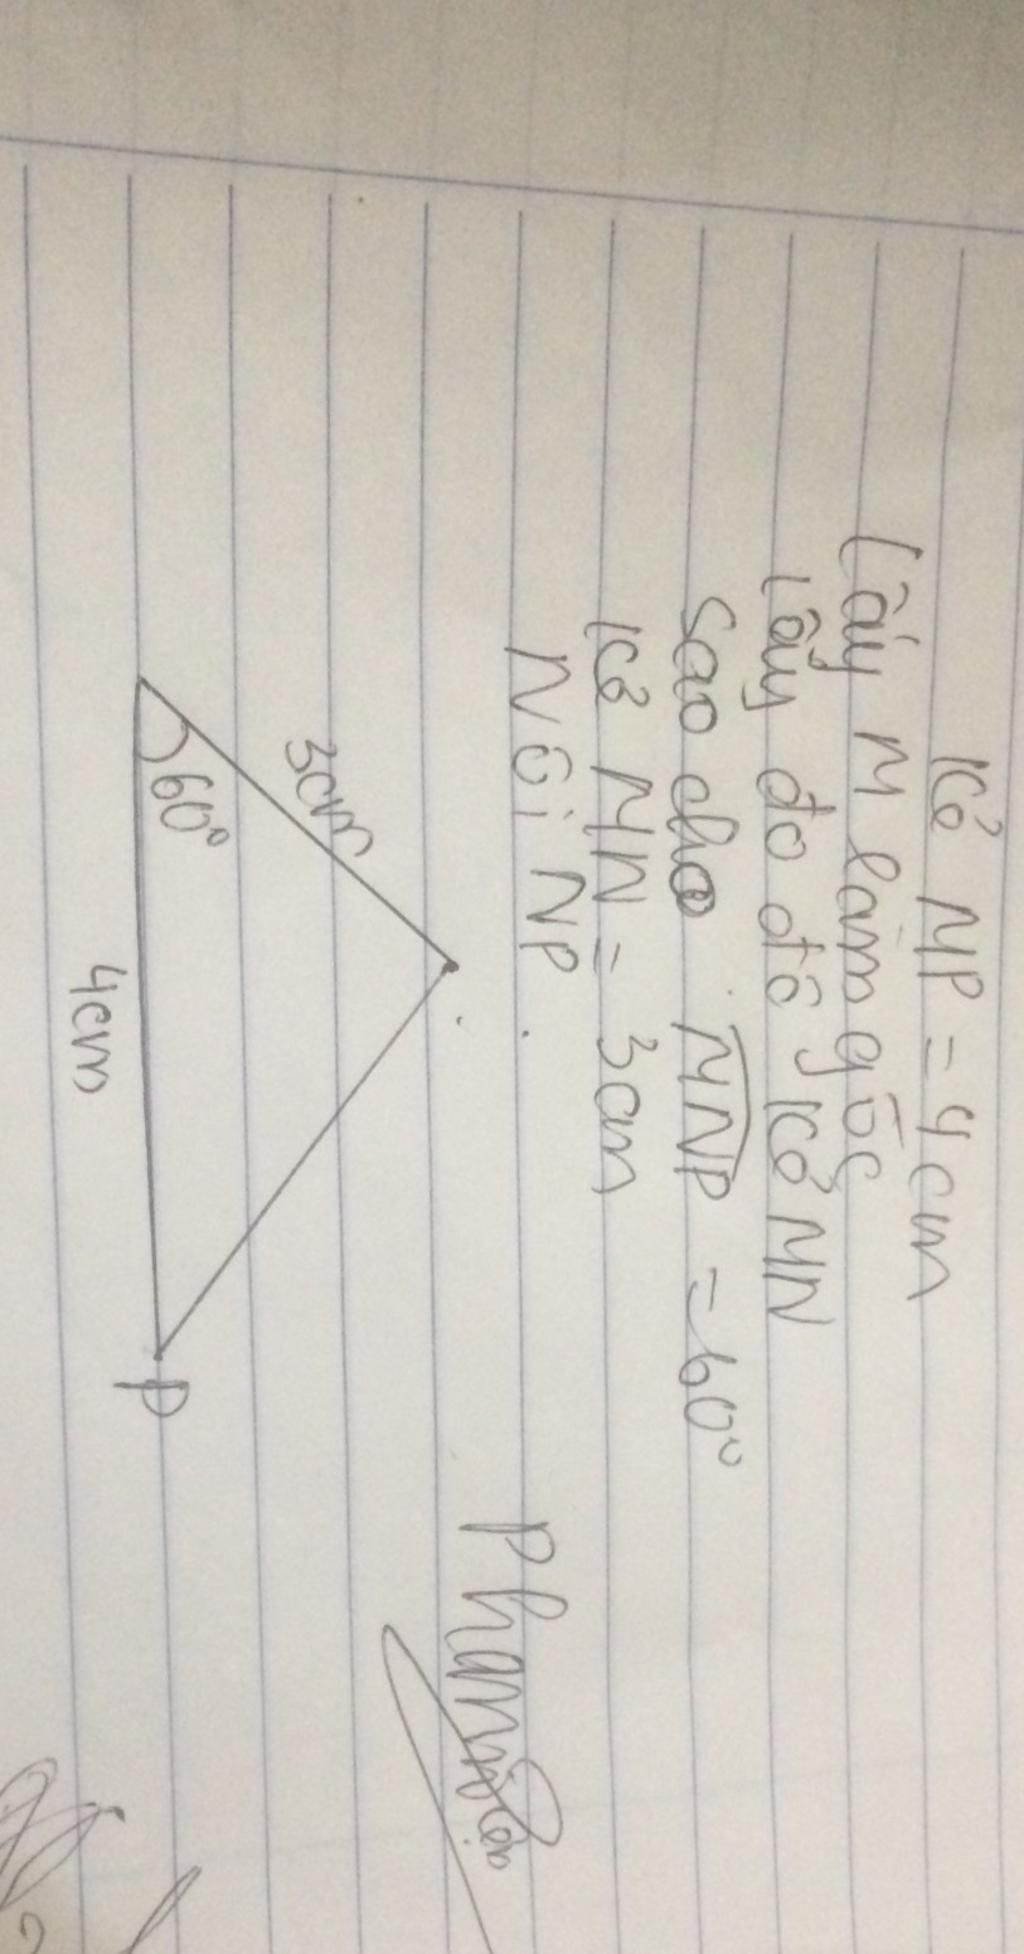 Kẻ MP = 4cm
Lấy M làm gốc
Lấy đo độ kẻ MN
Sao cho MNP = 60°
Kẻ MN = 3cm
Nối NP
3cm
60°
4cm
P